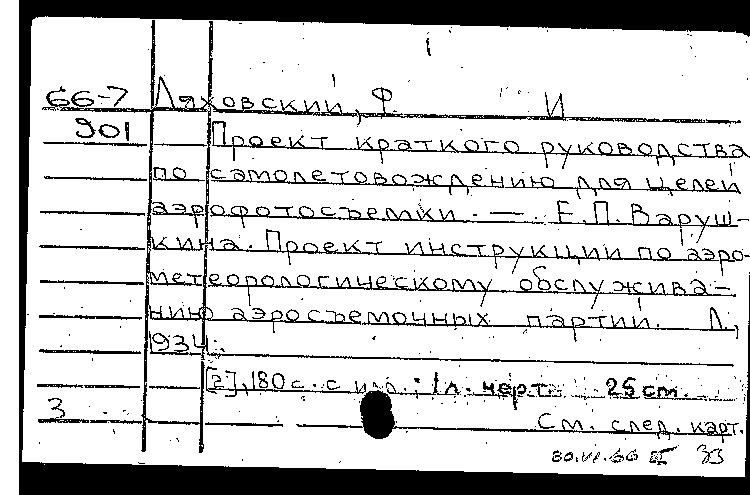 66-7 Ляховский, Ф И
901 Проект краткого руководства
по самолетовождению для целей
аэрофотосъемки. — Е.П. Варуш-
кина. Проект инструкции по аэро-
метеорологическому обслужива-
нию аэросъемочных партий. Л.,
1934.
[2], 180 с. с ил.; 1 л. черт. 25 см.
3 См. след. карт.
30.VI.66 33